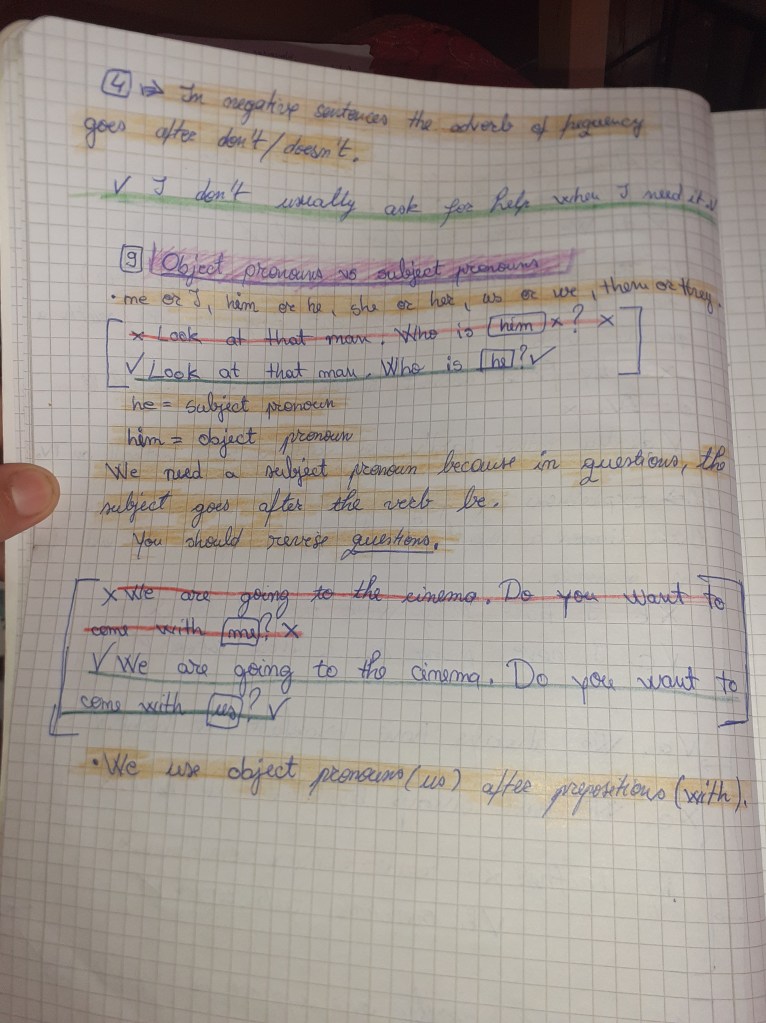 4 ⇒ In negative sentences the adverb of frequency
goes after don't/doesn't.
✓ I don't usually ask for help when I need it.✓
9 Object pronouns vs subject pronouns
• me or I, him or he, she or her, us or we, them or they.
x Look at that man. Who is him x? x
✓ Look at that man. Who is he? ✓
he = subject pronoun
him = object pronoun
We need a subject pronoun because in questions, the
subject goes after the verb be.
You should revise questions.
x We are going to the cinema. Do you want to
come with me? x
✓ We are going to the cinema. Do you want to
come with us? ✓
• We use object pronouns (us) after prepositions (with).